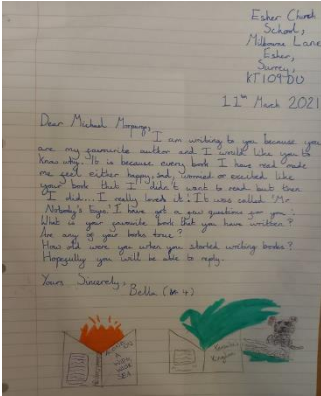 Esher Church
School,
Milbourne Lane
Esher,
Surrey,
KT10 9DU
11th March 2021
Dear Michael Morpurgo,
I am writing to you because you
are my favourite author and I would like you to
know why. It is because every book I have read made
me feel either happy, sad, or excited like
your book that I didn't want to read but then
I did... I really loved it! It was called 'Mr
Nobody's Eyes'. I have got a few questions for you:
What is your favourite book that you have written?
Are any of your books true?
How old were you when you started writing books?
Hopefully you will be able to reply.
Yours Sincerely,
Bella
ALONE
ON
A
WIDE
WIDE
SEA
Kingdom